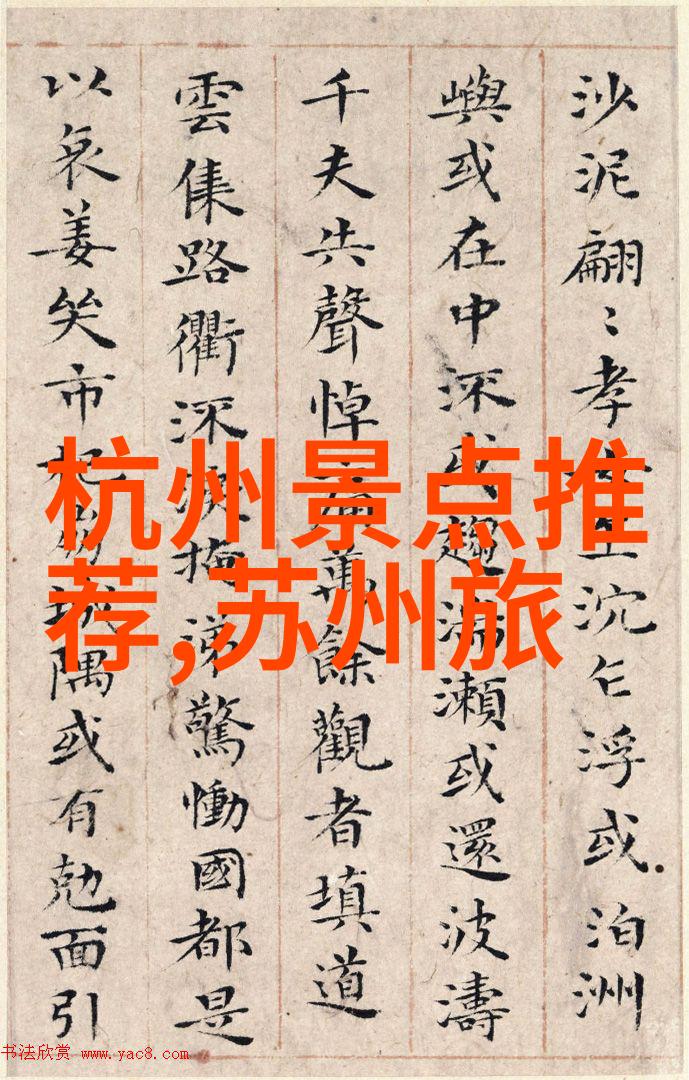 沙泥翩〻孝女沉乍浮或泊洲
嶼或在中深或趨湍瀨或還波濤
千夫共聲悼痛萬餘觀者填道
雲集路衢深淚掩涕驚慟國都是
以哀姜矣市杞崩城隅或有勊面引
杭州景点推
荐,苏州旅
书法欣赏 www.yac8.com